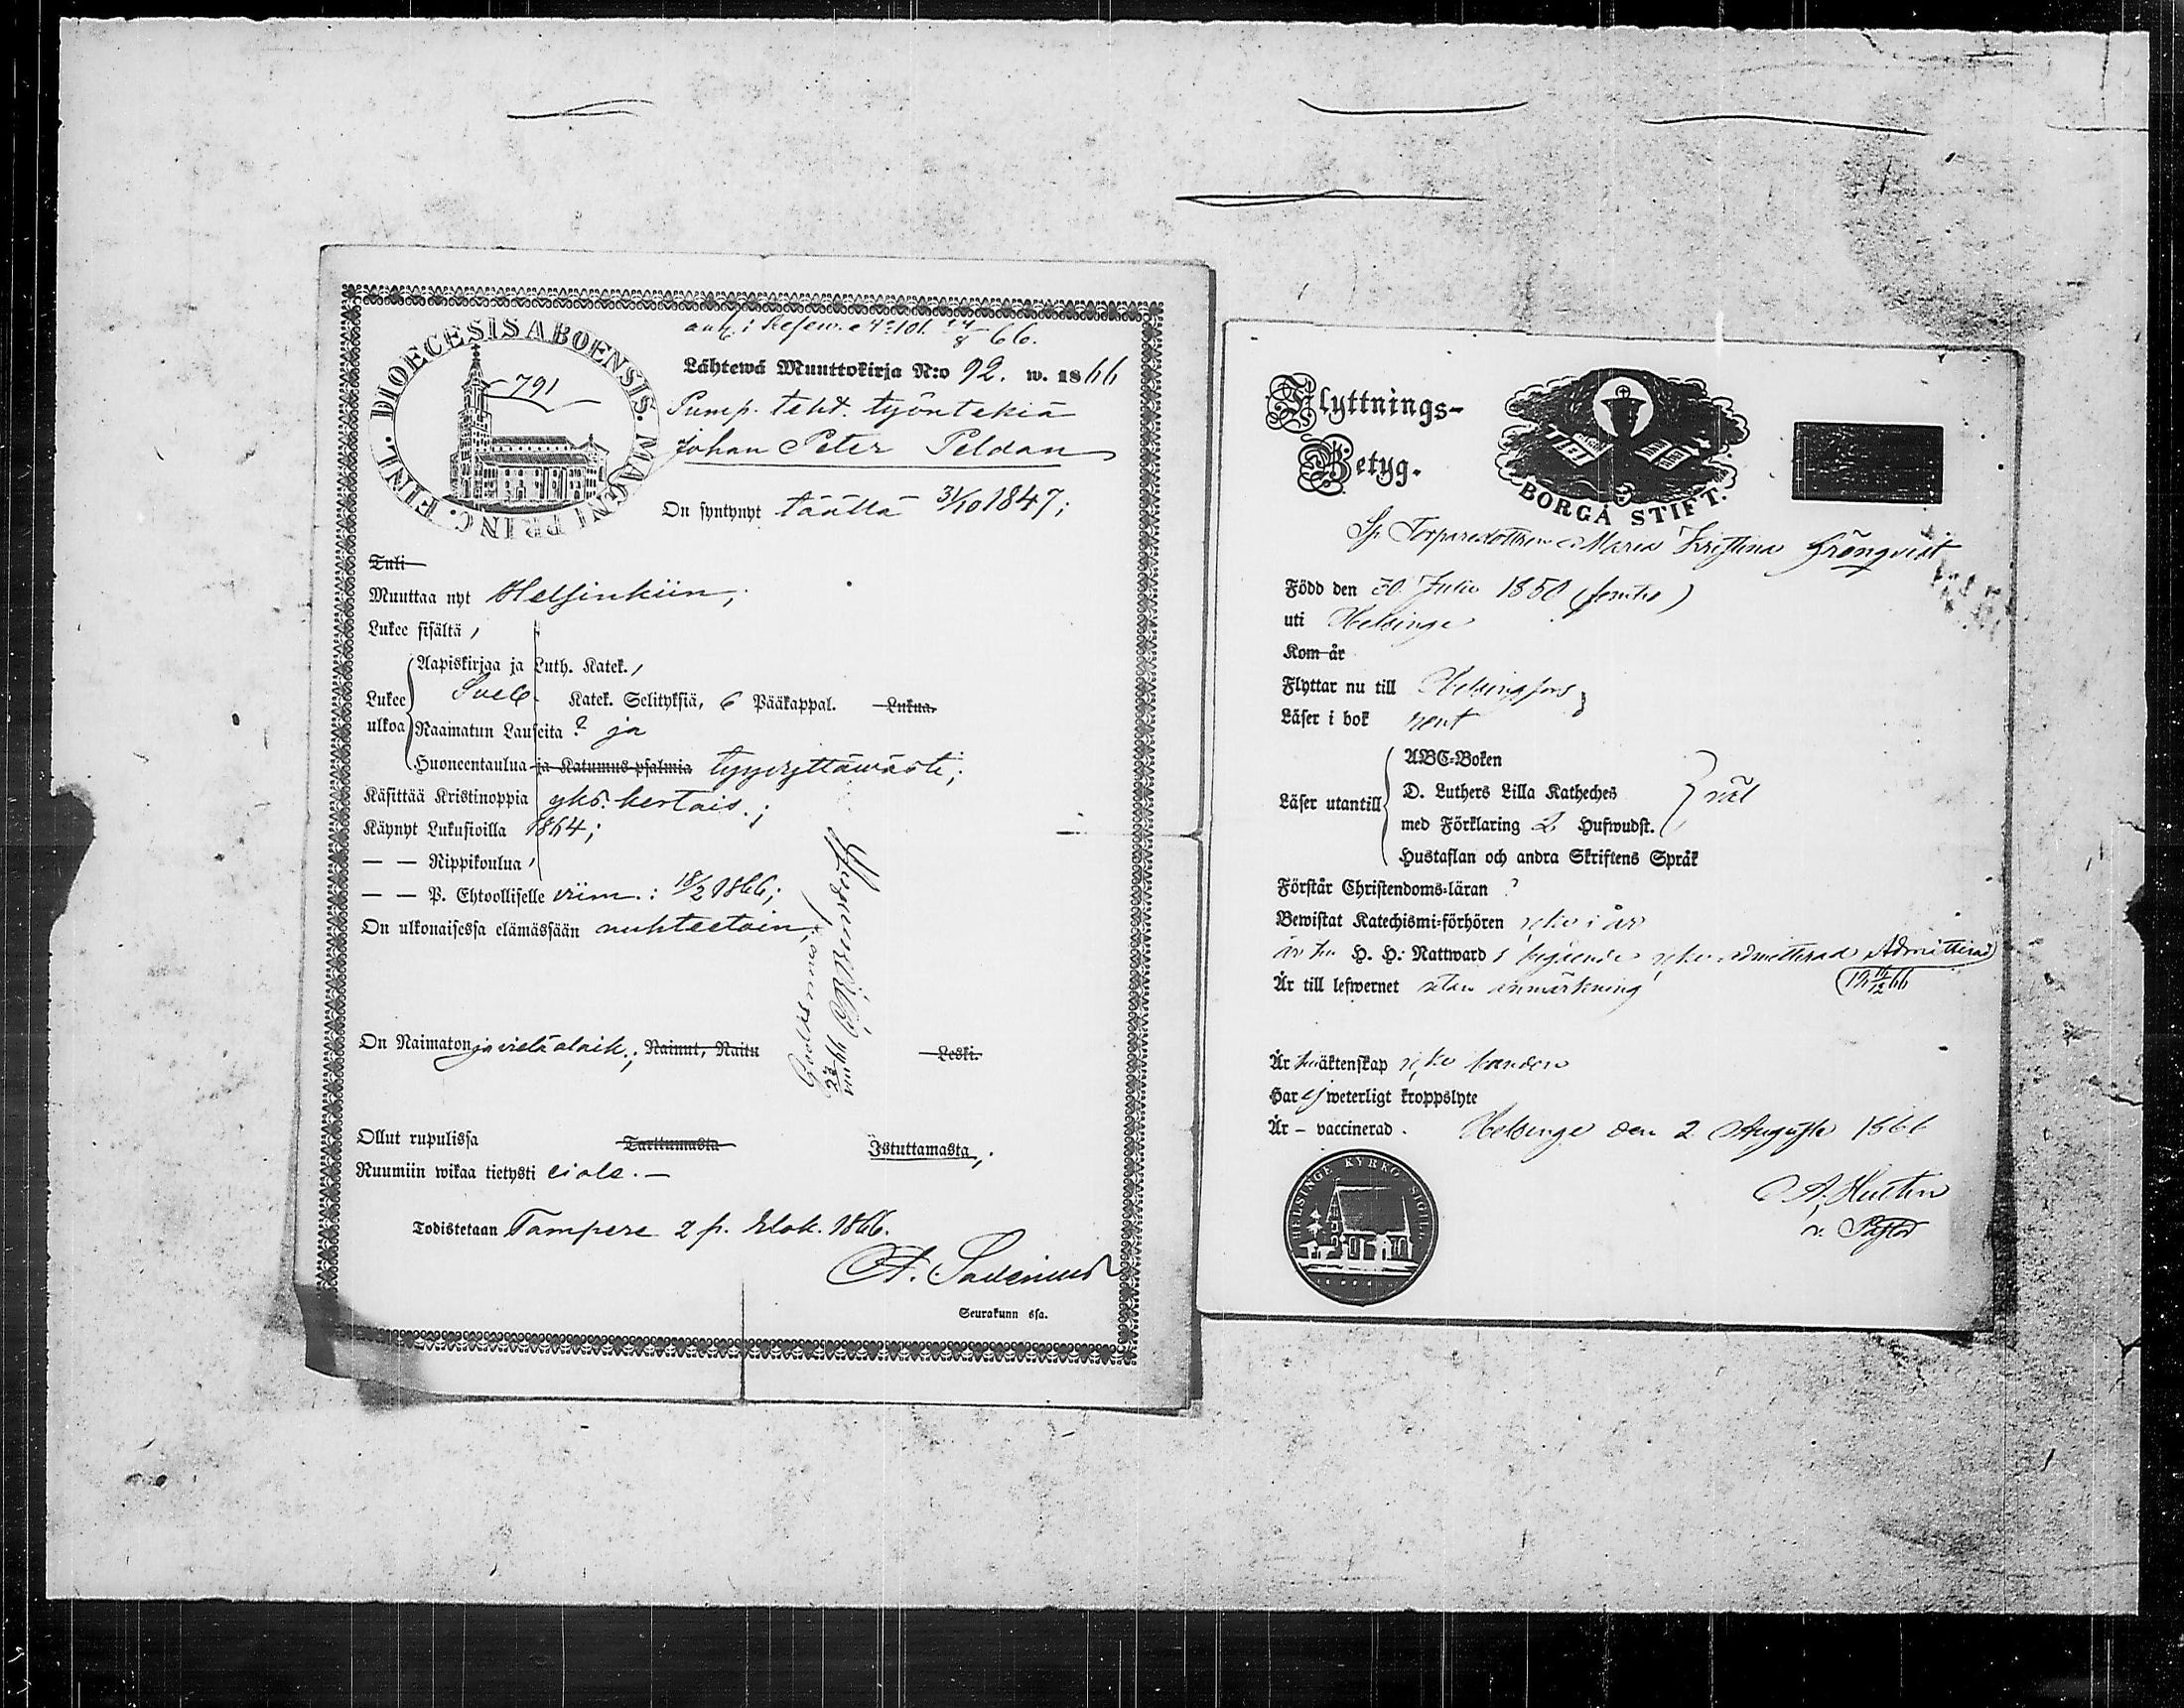 DIOECESIS ABOENSIS. MAGNI PRINC. FINL.
791
66.
Lähtewä Muuttokirja N:o 92. w. 1866
Pump. teht. työntekiä
Johan Peter Peldan
On syntynyt täällä 31/10 1847;
Tuli
Muuttaa nyt Helsinkiin,
Lukee sisältä,
Aapiskirjaa ja Luth. Katek.,
Lukee ulkoa
Sveb. Katek. Selityksiä, 6 Pääkappal. Lukua.
Raamatun Lauseita ? ja
Huoneentaulua ja Katumus psalmia tyydyttäwästi;
Käsittää Kristinoppia yks. kertais.;
Käynyt Lukusioilla 1864;
— — Rippikoulua,
— — P. Ehtoolliselle viim.: 18/2 1866;
On ulkonaisessa elämässään nuhteetoin;
On Naimaton ja vielä alaik.; Nainut, Naitu Leski.
Ollut rupulissa Tarttumasta Istuttamasta,;
Ruumiin wikaa tietysti ei ole. —
Todistetaan Tampere 2 p. Elok. 1866.
A. Sadenius
Seurakunn ssa.
Flyttnings-
Betyg.
BORGÅ STIFT.
Torparedottren Maria Kristina Grönqvist
Född den 30 Julii 1850 (femtio)
uti Helsinge
Kom år
Flyttar nu till Helsingfors;
Läser i bok rent
Läser utantill
ABC-Boken
D. Luthers Lilla Katheches
med Förklaring 2 Hufwudst.
väl
Hustaflan och andra Skriftens Språk
Förstår Christendoms-läran ?
Bewistat Katechismi-förhören icke i år
H. H: Nattward s begående icke admitterad Admitterad
Är till lefwernet utan anmärkning
Är äktenskap icke bunden
Har ej weterligt kroppslyte
Är – vaccinerad.
Helsinge den 2 Augusti 1866
HELSINGE KYRKO SIGILL
v. Pastor